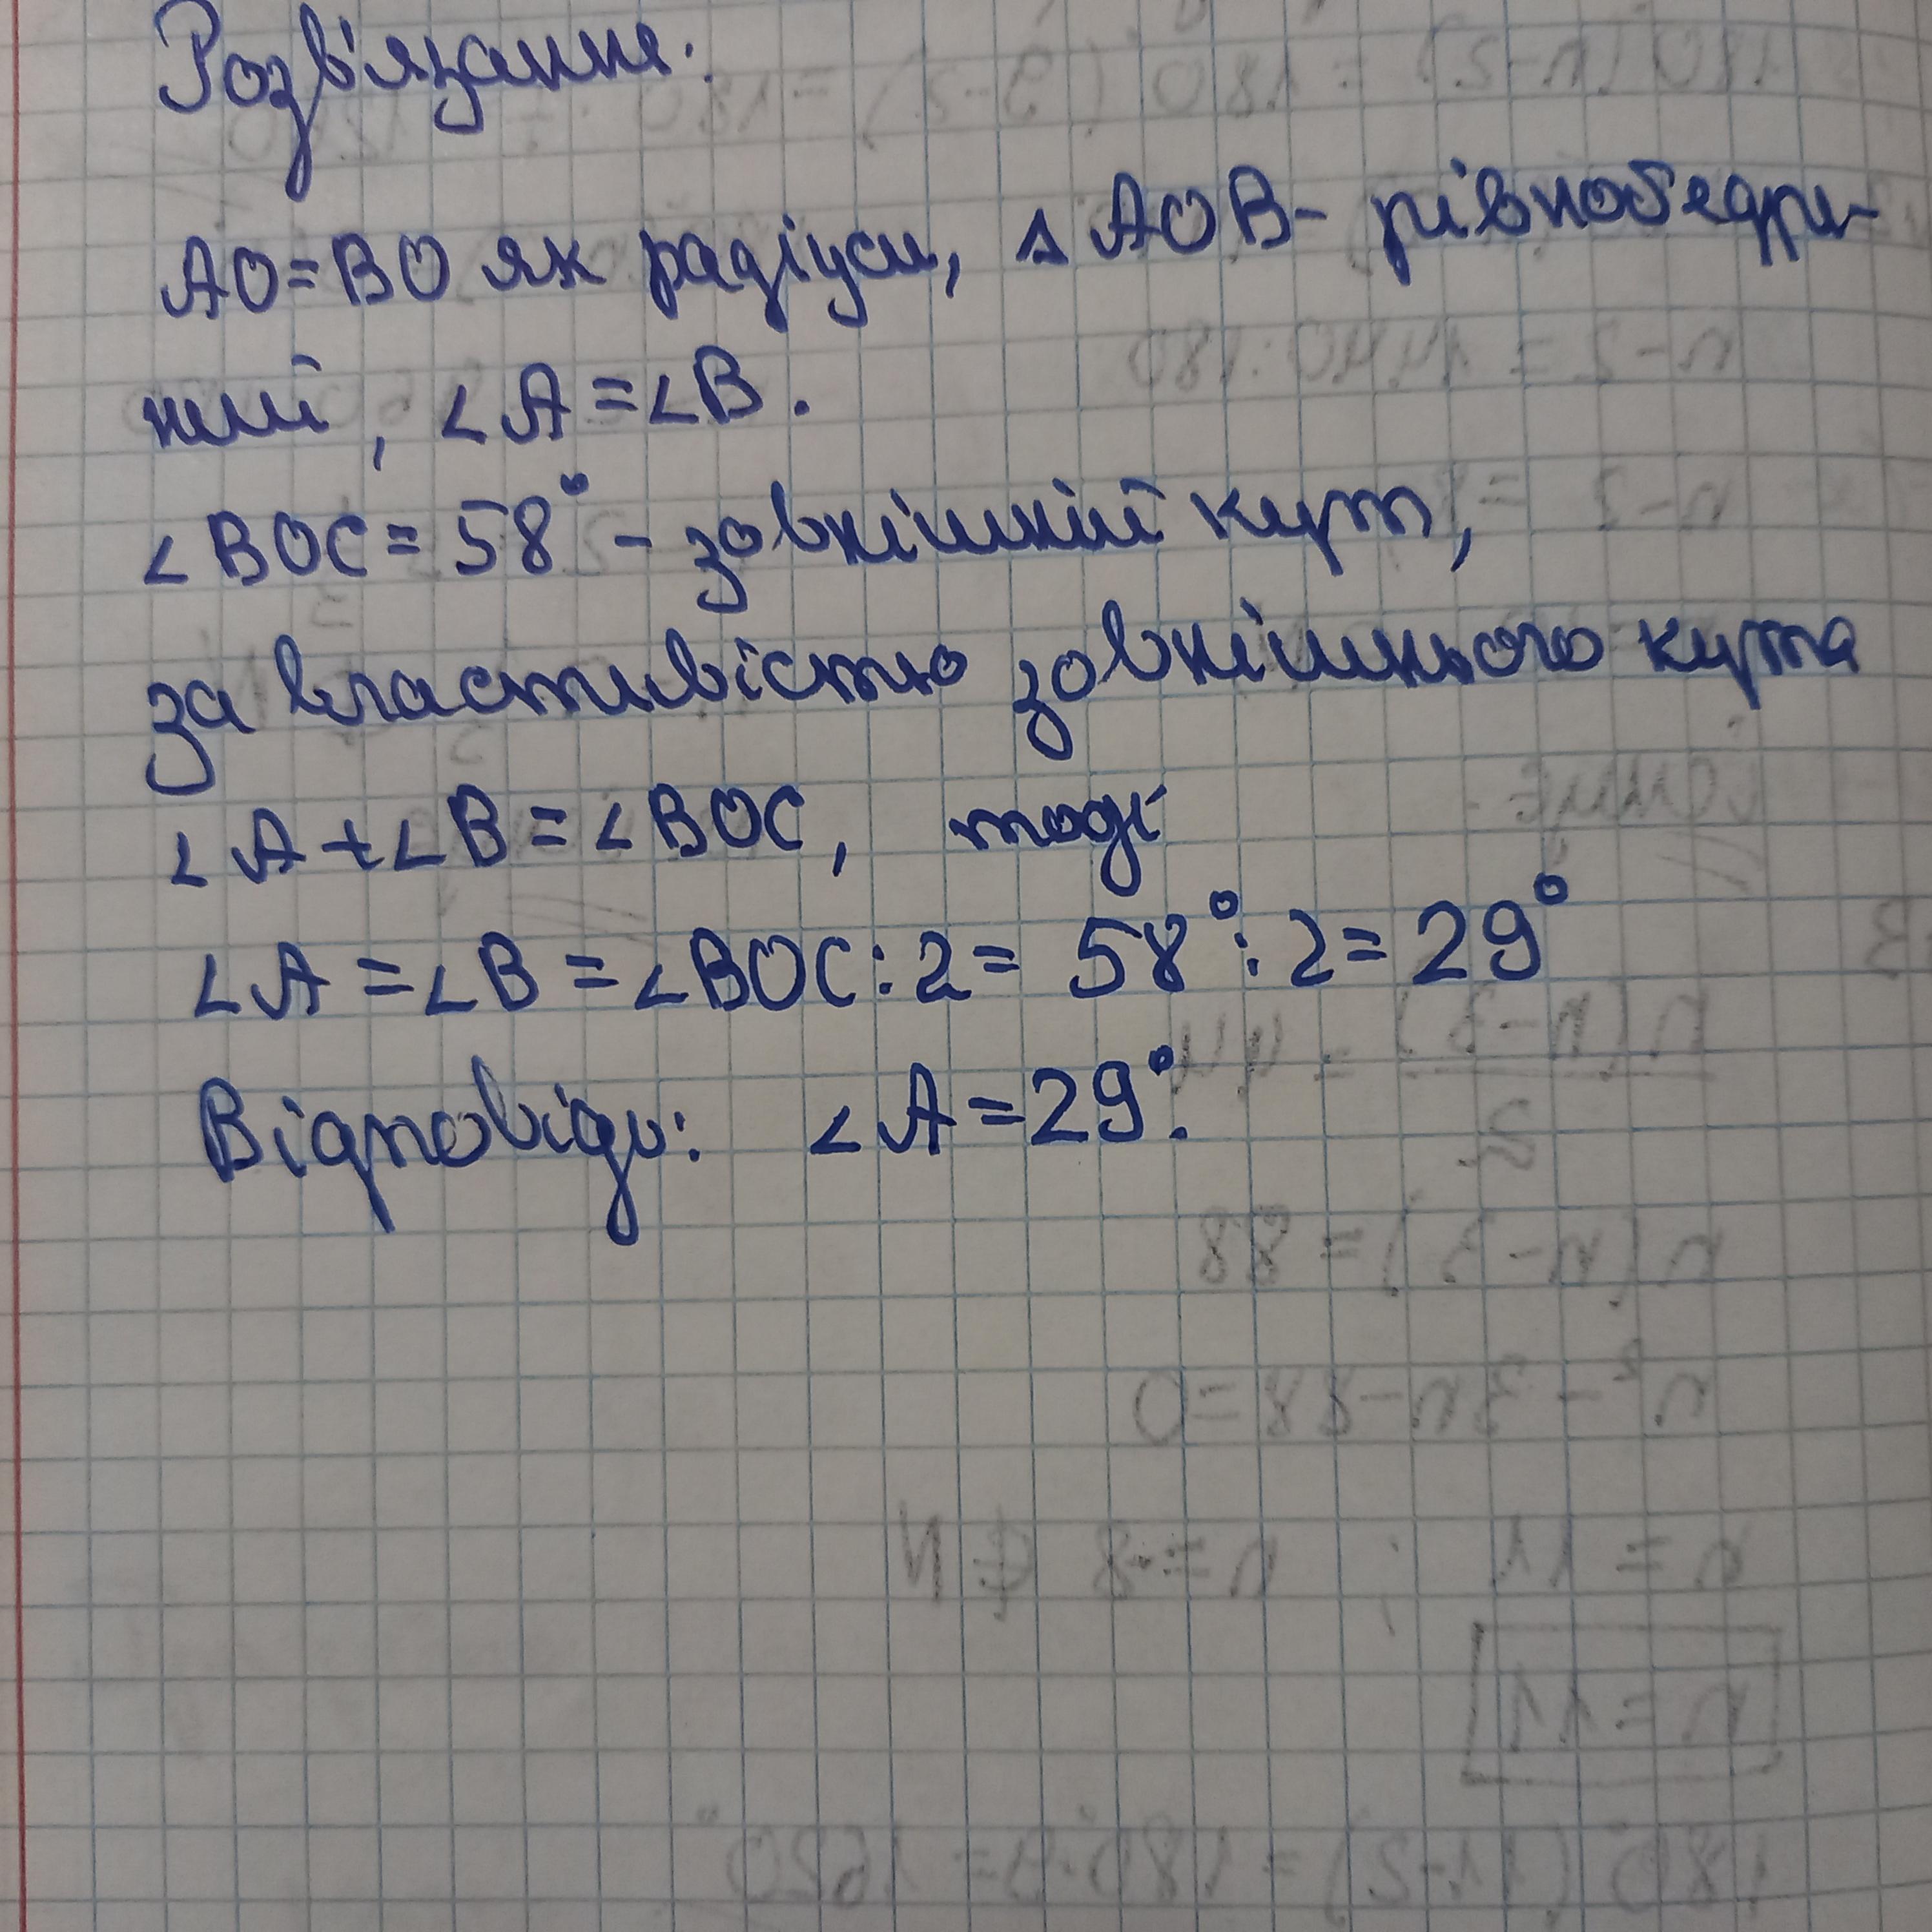 Розв'язання.
АО=ВО як радіуси, △ АОВ- рівнобедре-
ний, ∠А=∠В.
∠ВОС=58° - зовнішній кут,
за властивістю зовнішнього кута
∠А+∠В=∠ВОС, тоді
∠А=∠В=∠ВОС:2= 58°:2=29°
Відповідь: ∠А=29°.